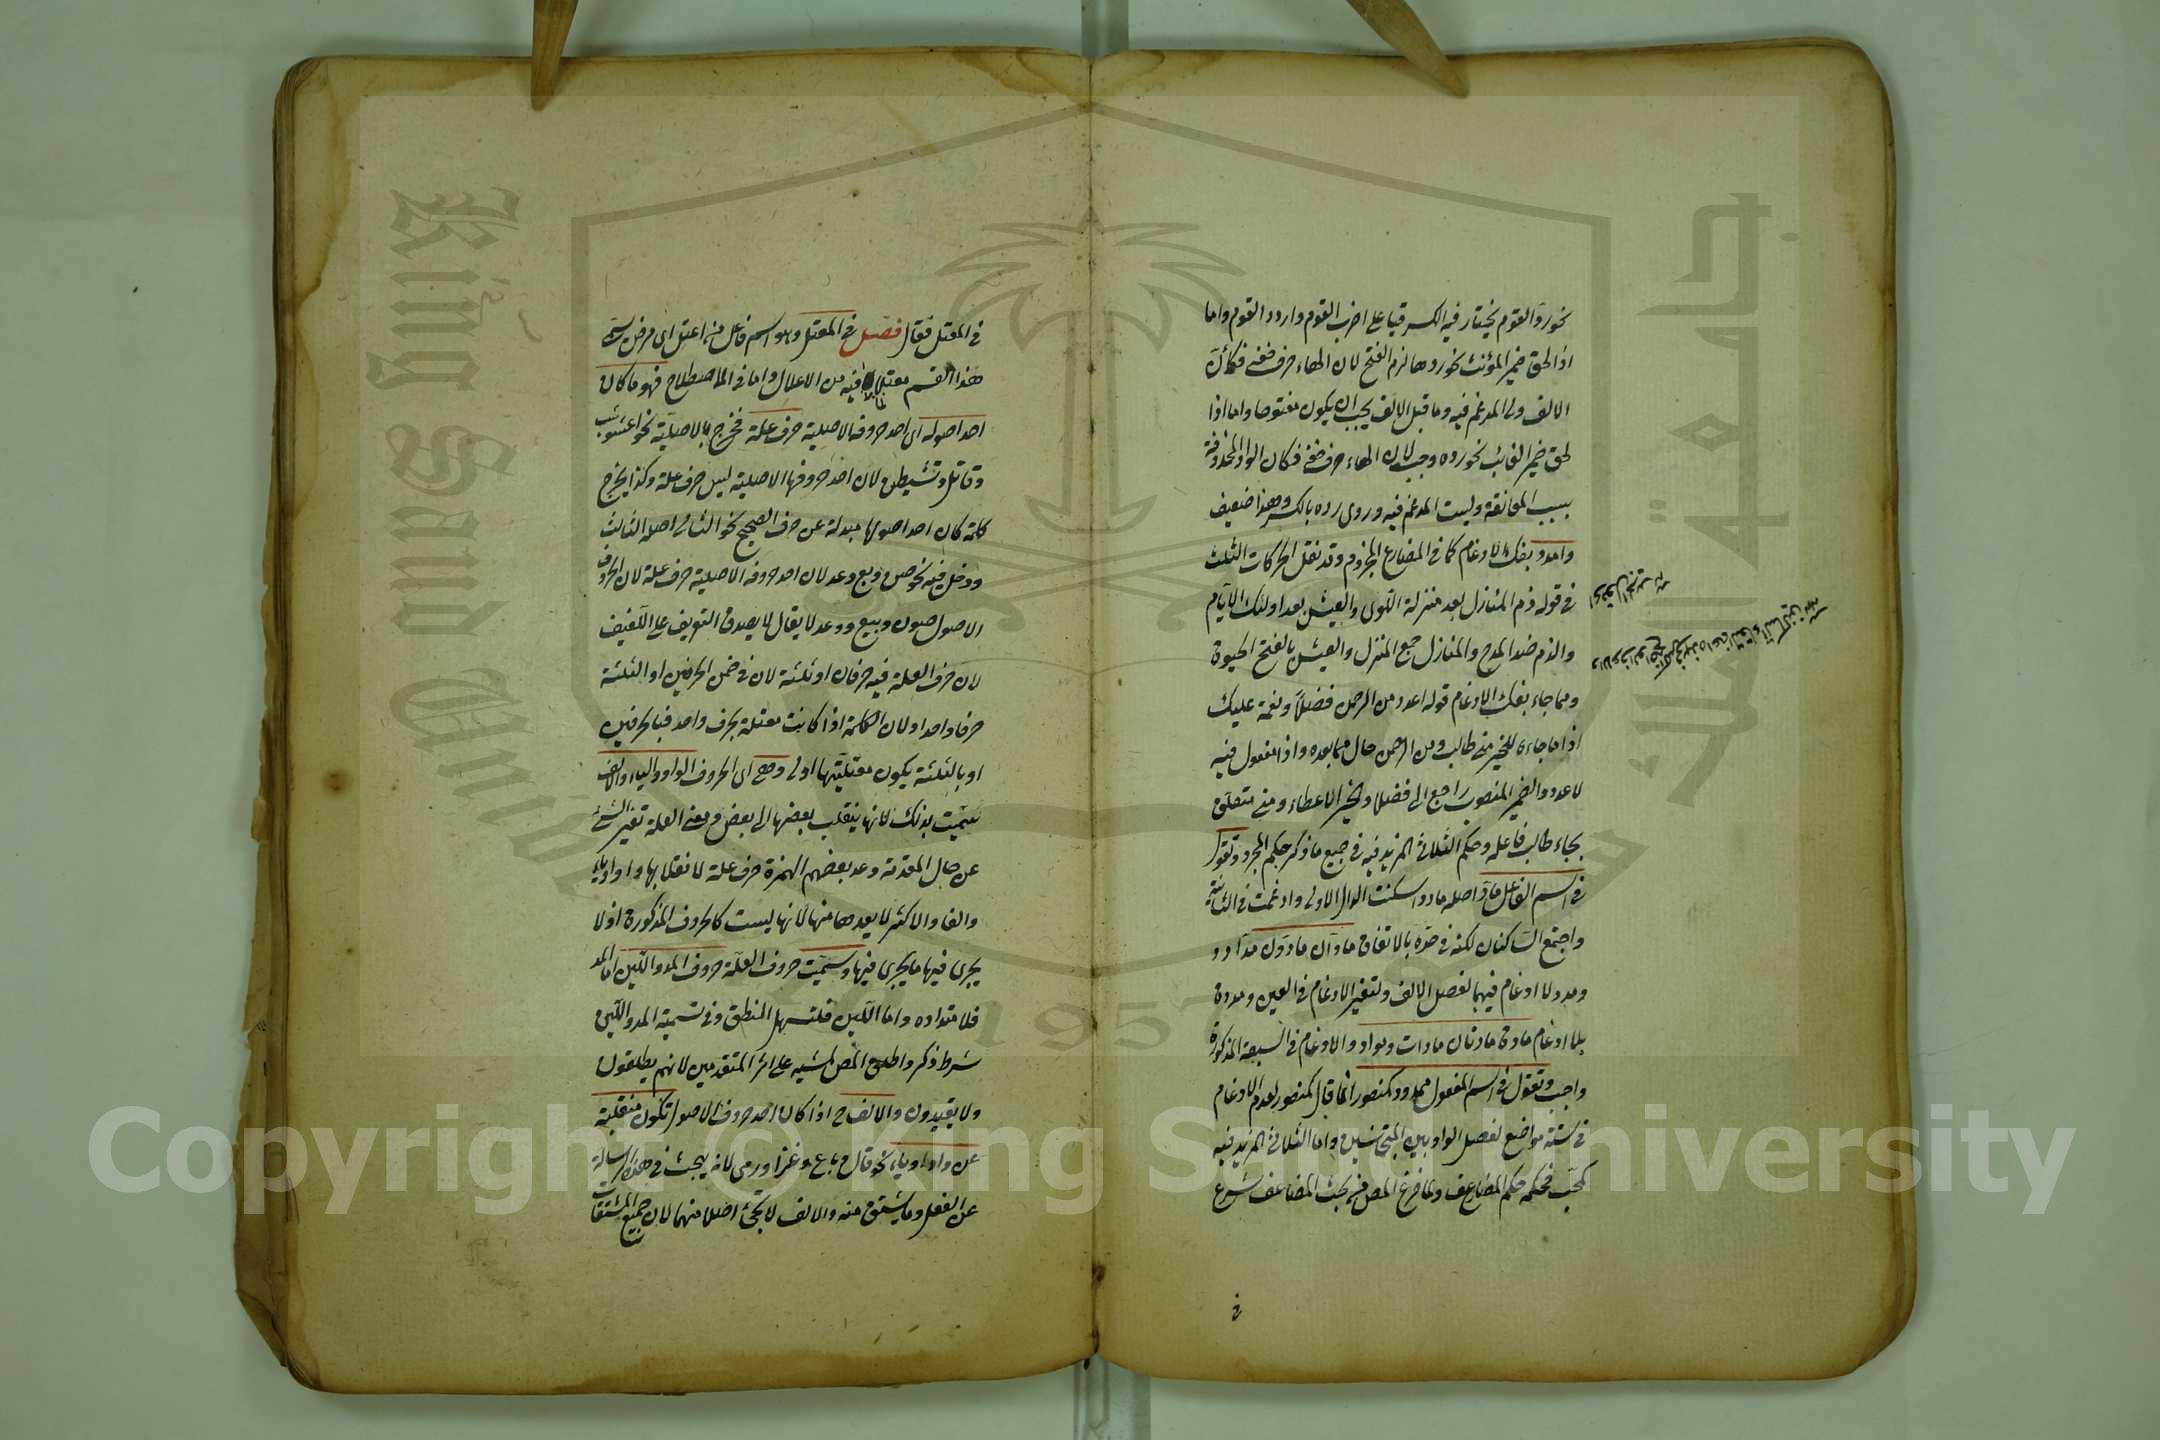 نحو رد القوم يختار فيه الكسر قياسا على اضرب القوم واردد القوم واما
اذا لحق ضمير المؤنث نحو ردها لزم الفتح لان الهاء حرف خفى فكأن
الالف ولى المدغم فيه وما قبل الالف يجب ان يكون مفتوحا واما اذا
لحق ضمير الغائب نحو رده وجب لان الهاء حرف خفى فكان الواو المحذوفة
بسبب الموانقة وليست المدغم فيه وروى رده بالكسر وهذا ضعيف
وامدد بفك الادغام كما فى المضارع المجزوم وقد نقل الحركات الثلث
فى قوله ذم المنازل بعد منزلة اللوى والعيش بعد اولئك الايام
والذم ضد المدح والمنازل جمع المنزل والعيش بالفتح الحيوة
ومما جاء بفك الادغام قوله اعدد من الرحمن فضلا ونعمة عليك
اذا ما جاءه للخير منى طالب ومن الرحمن حال مما بعده واذا مفعول فيه
لاعدد والضمير المنصوب راجع الى فضلا والخير الاعطاء ومنى متعلق
بجاء طالب فاعله وحكم الثلاثى المزيد فيه فى جميع ما ذكر حكم المجرد وتقول
فى اسم الفاعل ماد اصله مادد اسكنت الدال الاولى وادغمت فى الثانية
واجتمع الساكنان لكنه فى حده بالاتفاق مادان مادون مداد و
ومدد لا ادغام فيهما لفصل الالف ولتغير الادغام فى العين ومددة
بلا ادغام مادة مادتان مادات ومواد والادغام فى السبعة المذكورة
واجب وتقول فى اسم المفعول ممدود كمنصور انما قال كمنصور لعدم الادغام
فى ستة مواضع لفصل الواو بين المتجانسين واما الثلاثى المزيد فيه
كمحب فحكمه حكم المضارع ولما فرغ المص من بحث المضاعف شرع
فى
فى المعتل فقال فصل فى المعتل وهو اسم فاعل من اعتل اى مرض سمى
هذا القسم معتلا لما فيه من الاعلال واما فى الاصطلاح فهو ما كان
احد اصوله اى احد حروفه الاصلية حرف علة فخرج بالاصلية نحو اعشوشب
وقاتل وتشيطن لان احد حروفها الاصلية ليس حرف علة وكذا يخرج
كلمة كان احد اصولها مبدلة عن حرف الصحيح نحو الثالى اصله الثالث
ودخل فيه نحو صن وبع وعد لان احد حروفه الاصلية حرف علة لان الحروف
الاصول صون وبيع ووعد لا يقال لا يصدق التعريف على اللفيف
لان حرف العلة فيه حرفان او ثلثة لان فى ضمن الحرفين او الثلثة
حرفا واحدا ولان الكلمة اذا كانت معتلة بحرف واحد فبالحرفين
او بالثلثة يكون معتليتها اولى وهى اى الحروف الواو والياء والالف
سميت بذلك لانها ينقلب بعضها الى بعض ومعنى العلة تغير الشئ
عن حال المقدمة وعد بعضهم الهمزة حرف علة لانقلابها واوا وياء
والفا والاكثر لا يعدها منها لانها ليست كالحروف المذكورة اذ لا
يجرى فيها ما يجرى فيها وسميت حروف العلة حروف المد واللين اما المد
فلامتداده واما اللين فلتسهل المنطق وفى تسمية المد واللين
شرط ذكر واطلاق المص لمشيه على اثر المتقدمين لانهم يطلقون
ولا يقيدون والالف ح اذا كان احد حروف الاصول تكون منقلبة
عن واو او ياء نحو قال وباع وغزا ورمى لانه يبحث فى هذه الرسالة
عن الفعل وما يشتق منه والالف لا تجئ اصلا منهما لان جميع المشتقات